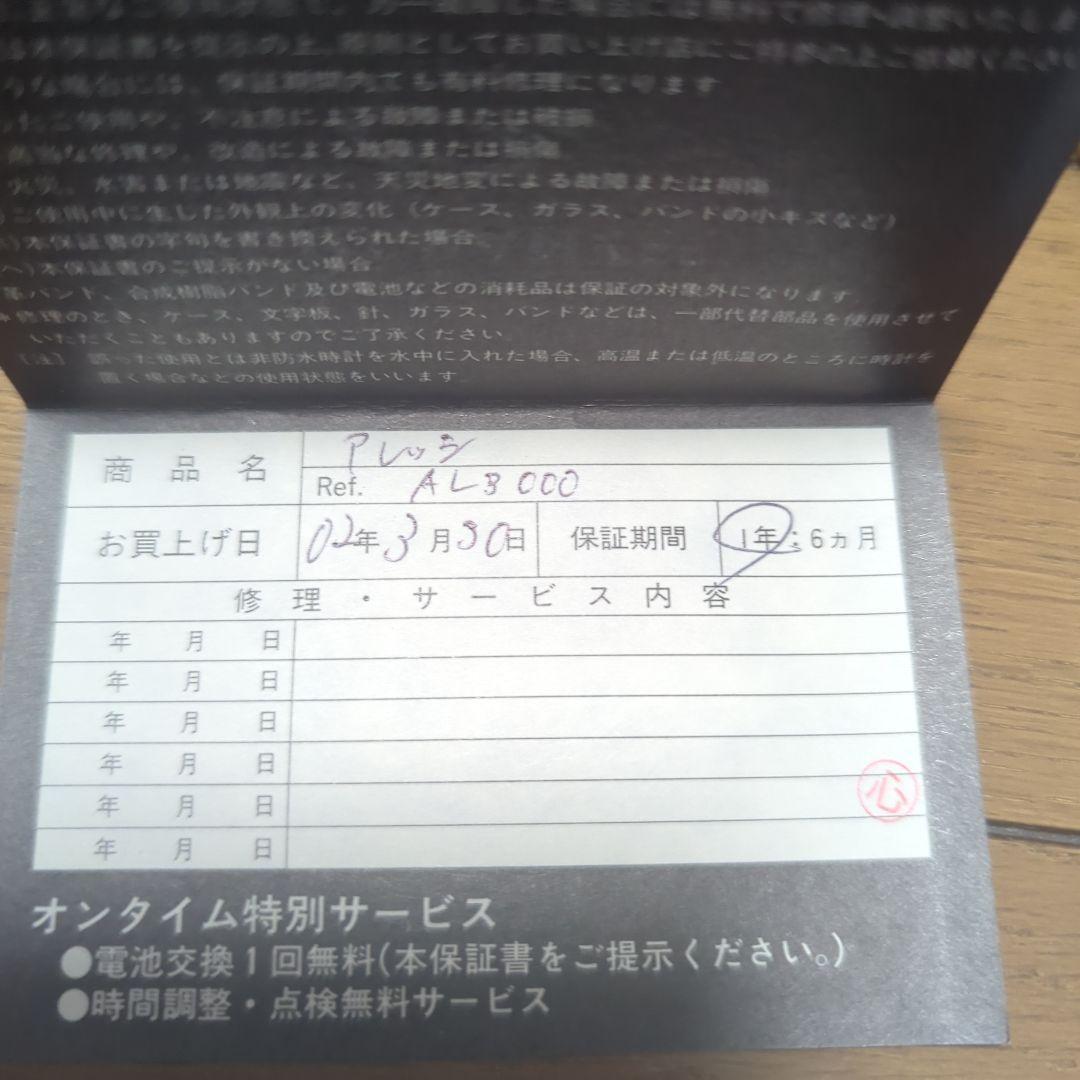 本保証書を提示の上、原則としてお買い上げ店に
な場合には、保証期間内でも有料修理になります
や、不注意による故障または破損
な修理や、改造による故障または損傷
火災、水害または地震など、天災地変による故障または損傷
ご使用中に生じた外観上の変化（ケース、ガラス、バンドの小キズなど）
）本保証書の字句を書き換えられた場合。
ヘ）本保証書のご提示がない場合
革バンド、合成樹脂バンド及び電池などの消耗品は保証の対象外になります。
修理のとき、ケース、文字板、針、ガラス、バンドなどは、一部代替部品を使用させて
いただくこともありますのでご了承ください。
〔注〕誤った使用とは非防水時計を水中に入れた場合、高温または低温のところに時計を
置く場合などの使用状態をいいます。
商品名 アレッシ
Ref. AL3000
お買上げ日 02年3月30日 保証期間 1年:6ヵ月
修理・サービス内容
年 月 日
年 月 日
年 月 日
年 月 日
年 月 日
心
年 月 日
オンタイム特別サービス
●電池交換1回無料(本保証書をご提示ください。)
●時間調整・点検無料サービス